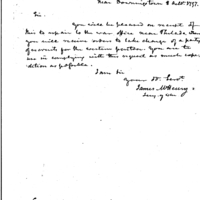 near Downingstown 8 Octr. 1797.
Sir.
You will be pleased on receipt of
this to repair to the war office near Philada
you will receive orders to take charge of a party
of recruits for the western frontier. You are to
use in complying with this request as much expe-
dition as possible.
I am Sir
your Ob. Servt.
James McHenry
Secy of War